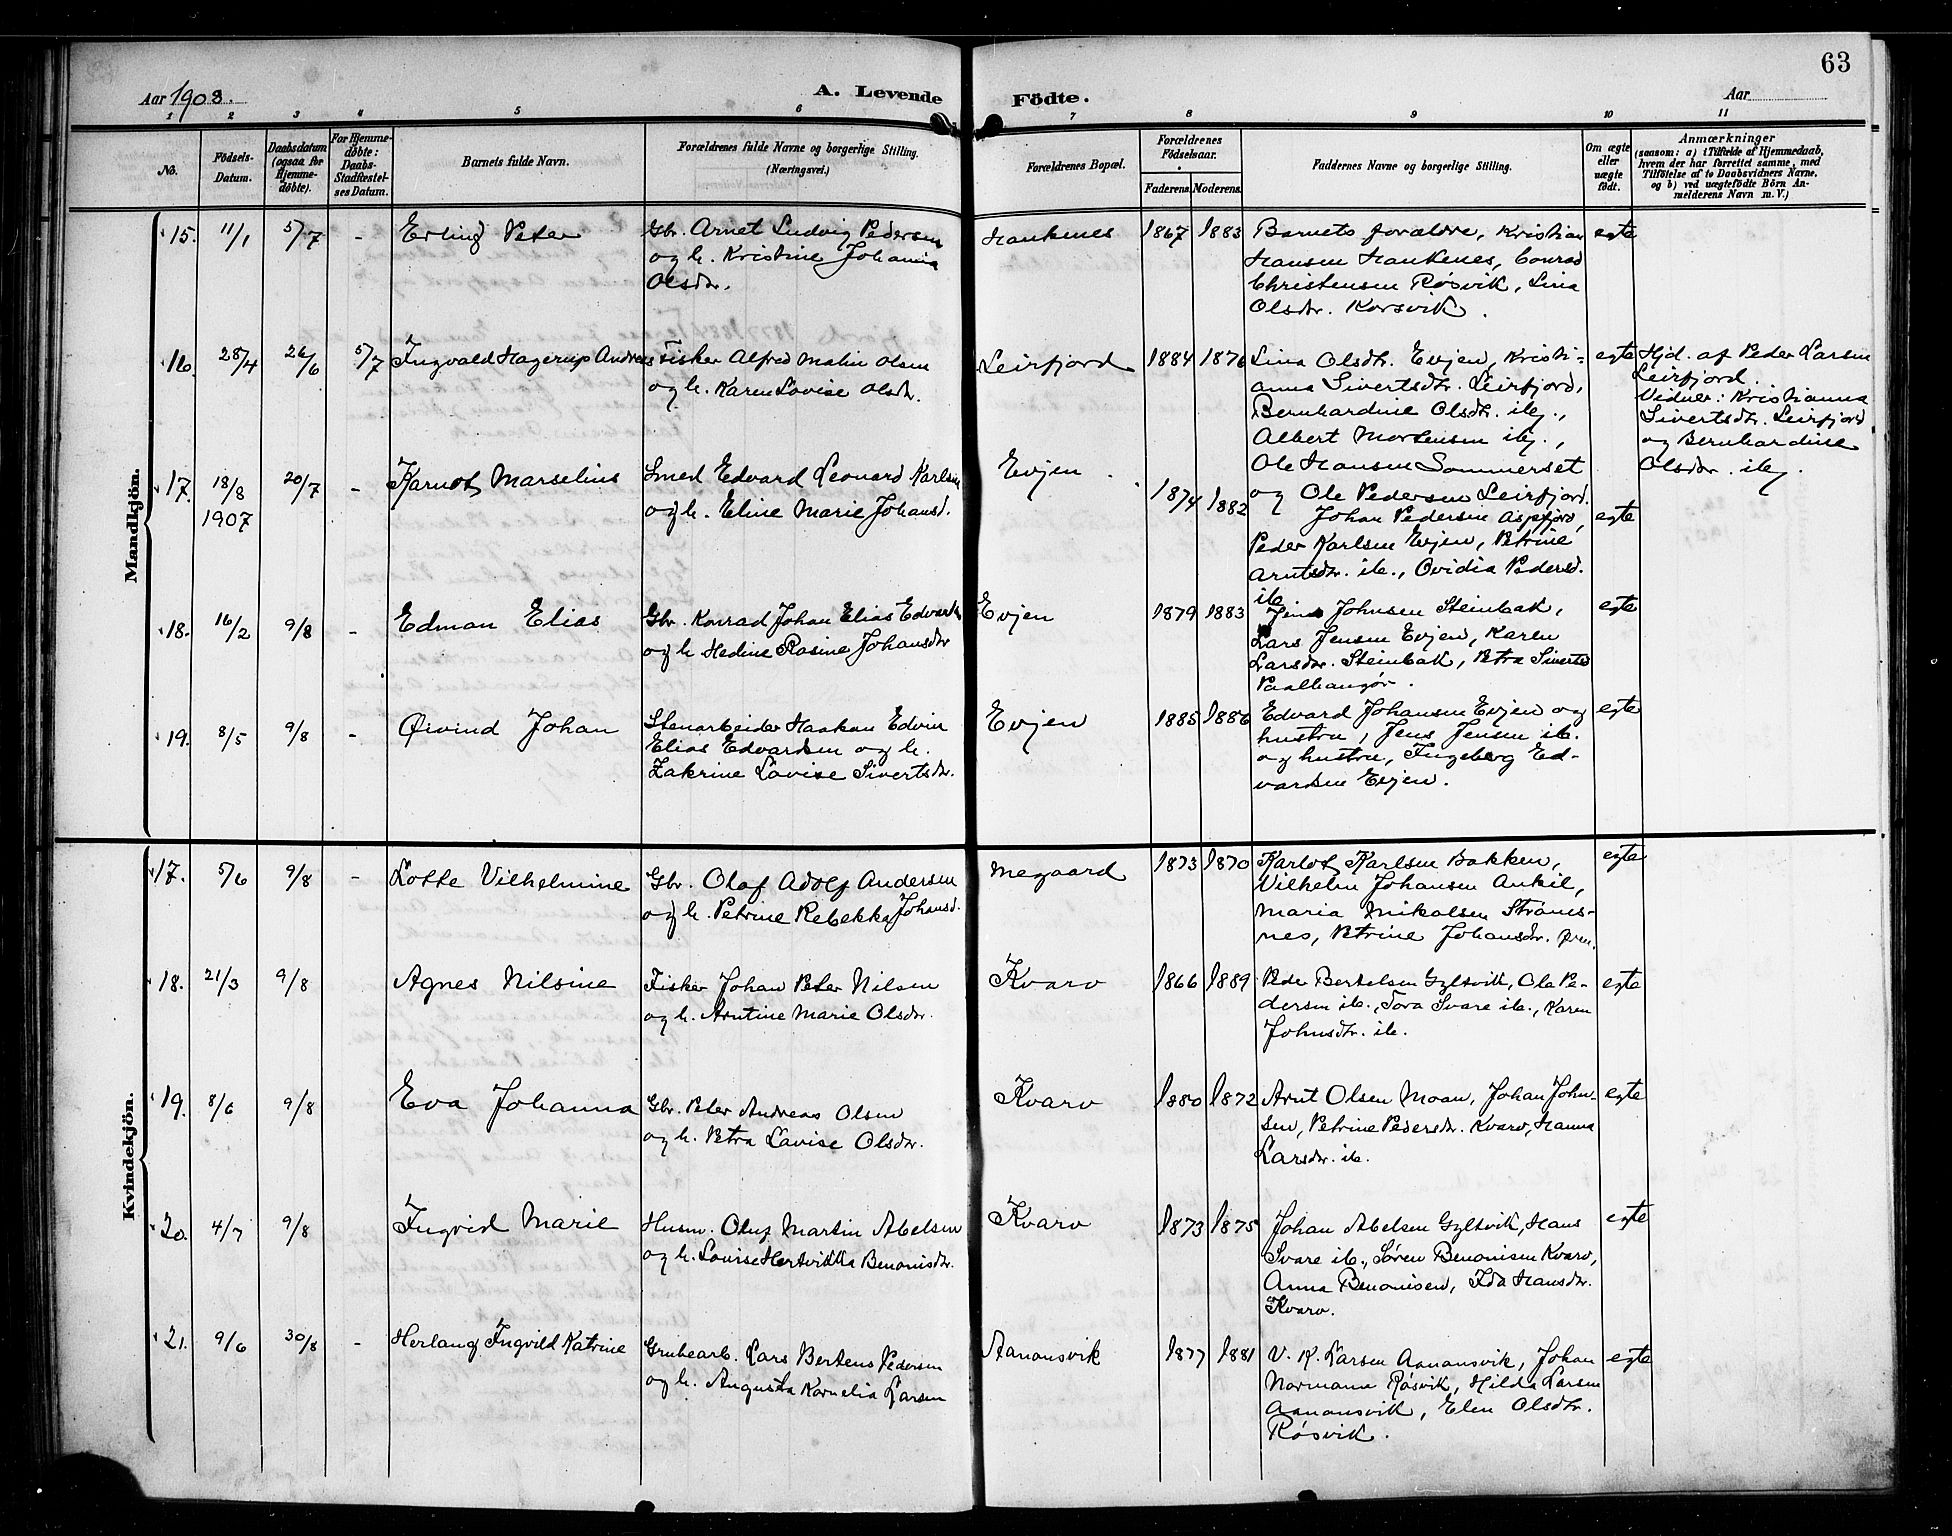 63
Aar 1908.
A. Levende Födte.
Aar
1 2 3 4 5 6 7 8 9 10 11
No.
Födsels-
Datum.
Daabsdatum
(ogsaa for
Hjemme-
döbte).
For Hjemme-
döbte:
Daabs-
Stadfæstel-
ses Datum.
Barnets fulde Navn.
Forældrenes fulde Navne og borgerlige Stilling.
(Næringsvei.)
Forældrenes Bopæl.
Forældrenes
Födselsaar.
Faderens.
Moderens.
Faddernes Navne og borgerlige Stilling.
Om ægte
eller
uægte
født.
Anmærkninger
(saasom: a) i Tilfælde af Hjemmedaab,
hvem der har forrettet samme, med
Tilföielse af to Daabsvidners Navne,
og b) ved uægtefödte Börn An-
melderens Navn m. V.)
Mandkjön.
15. 11/1 5/7 - Erling Peter
Gbr. Arnet Ludvig Pedersen
og h. Kristine Johanna
Olsdtr.
Hankenes 1867 1883
Barnets forældre, Kristian
Hansen Hankenes, Conrad
Christensen Røsvik, Lina
Olsdtr. Korsvik.
egte
16. 28/4 26/6 5/7 Ingvald Hagerup Andreas
Fisker Alfred Malin Olsen
og h. Karen Lovise Olsdtr.
Leirfjord 1884 1876
Lina Olsdtr. Evjen, Kristi-
anna Sivertsdtr. Leirfjord,
Bernhardine Olsdtr. ib.,
Albert Mortensen ib.,
Ole Hansen Sommerset
og Ole Pedersen Leirfjord.
egte
Hjd. af Peder Larsen
Leirfjord.
Vidner: Kristianna
Sivertsdtr. Leirfjord
og Bernhardine
Olsdtr. ib.
17. 18/8 1907 20/7 - Karnot Marselius
Smed Edvard Leonard Karlsen
og h. Eline Marie Johansd.
Evjen. 1874 1882
Johan Pedersen Aspfjord,
Peder Karlsen Evjen, Petrine
Arntsdtr. ib., Ovidia Pedersd.
ib.
egte
18. 16/2 9/8 - Edman Elias
Gbr. Konrad Johan Elias Edvards.
og h. Hedine Rasine Johansdtr
Evjen 1879 1883
Jens Johnsen Steinbak,
Lars Jensen Evjen, Karen
Larsdtr. Steinbak, Petra Siverts
Paalhaugør.
egte
19. 8/5 9/8 - Øivind Johan
Stenarbeider Haakon Edvin
Elias Edvardsen og h.
Zakrine Lovise Sivertsdtr.
Evjen 1885 1886
Edvard Johansen Evjen og
hustru, Jens Jensen ib.
og hustru, Ingeborg Ed-
vardsen Evjen.
egte
Kvindekjön.
17. 5/6 9/8 - Lotte Vilhelmine
Gbr. Olaf Adolf Andersen
og h. Petrine Rebekka Johansd.
Megaard 1873 1870
Karlot Karlsen Bakken,
Vilhelm Johansen Ankil,
Maria Mikalsen Strøms-
nes, Petrine Johansdtr.
egte
18. 21/3 9/8 Agnes Nilsine
Fisker Johan Peter Nilsen
og h. Arntine Marie Olsdtr.
Kvarv 1866 1889
Peder Bertelsen Gyltvik, Ole Pe-
dersen ib., Tora Svare ib., Karen
Johnsdtr. ib.
egte
19. 8/6 9/8 Eva Johanna
Gbr. Peter Andreas Olsen
og h. Petra Lovise Olsdtr.
Kvarv 1880 1872
Arnt Olsen Moan, Johan John-
sen, Petrine Pedersdtr. Kvarv, Hanna
Larsdtr. ib.
egte
20. 4/7 9/8 Ingvid Marie
Husm. Oluf Martin Abelsen
og h. Lovise Hertvikka Benonisdtr.
Kvarv 1873 1875
Johan Abelsen Gyltvik, Hans
Svare ib., Søren Benonisen Kvarv,
Anna Benonisen, Ida Hansdtr.
Kvarv.
egte
21. 9/6 30/8 - Herlaug Ingvild Katrine
Grubearb. Lars Bertens Pedersen
og h. Augusta Kornelia Larsen
Aanonsvik 1877 1881
V. K. Larsen Aanonsvik, Johan
Normann Røsvik, Hilda Larsen
Aanonsvik, Elen Olsdtr.
Røsvik.
egte